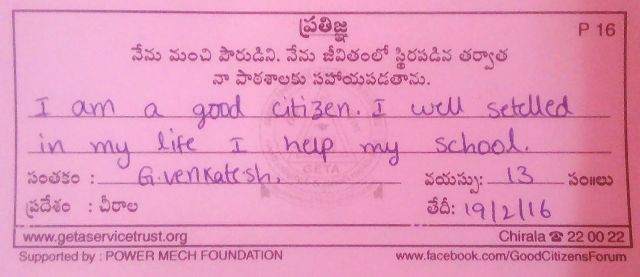 ప్రతిజ్ఞ
P 16
నేను మంచి పౌరుడిని. నేను జీవితంలో స్థిరపడిన తర్వాత
నా పాఠశాలకు సహాయపడతాను.
I am a good citizen. I well setelled
in my life I help my school.
సంతకం : G.venkatesh. వయస్సు: 13 సం॥లు
ప్రదేశం : చీరాల తేదీ: 19/2/16
GETA
www.getaservicetrust.org Chirala ☎ 22 00 22
Supported by : POWER MECH FOUNDATION www.facebook.com/GoodCitizensForum